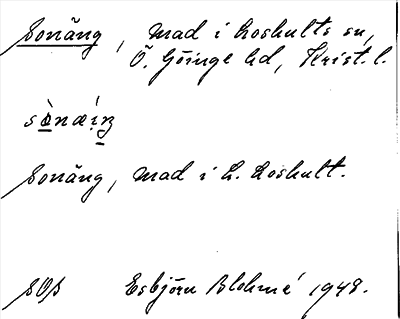 Sonäng, mad i Loshults sn,
Ö. Göinge hd, Krist. l.
sònæ̀ıŋ
Sonäng, mad i L. Loshult.
SOS Esbjörn Blohmé 1948.